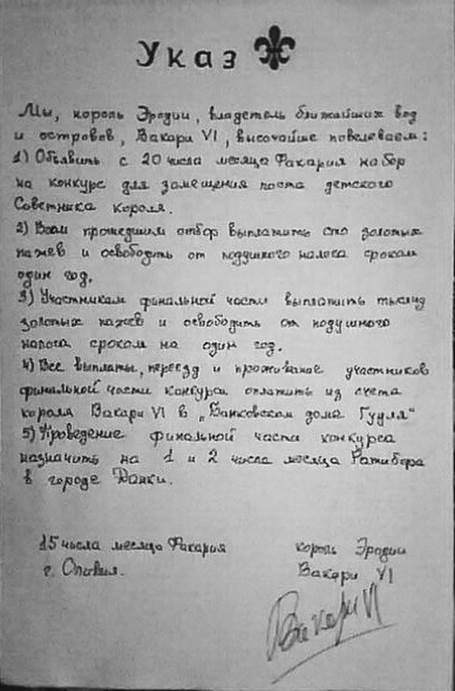 Указ
Мы, король Эродии, владетель ближайших вод
и островов, Вакари VI, высочайше повелеваем:
1) Объявить с 20 числа месяца Факария набор
на конкурс для замещения поста детского
Советника Короля.
2) Всем прошедшим отбор выплатить сто золотых
пажев и освободить от подушного налога сроком
один год.
3) Участникам финальной части выплатить тысячу
золотых пажев и освободить от подушного
налога сроком на один год.
4) Все выплаты, переезд и проживание участников
финальной части конкурса оплатить из счета
короля Вакари VI в „Банковском доме Гудля“
5) Проведение финальной части конкурса
назначить на 1 и 2 числа месяца Ратибора
в городе Данки.
15 числа месяца Факария король Эродии
г. Вакари VI
Вакари VI